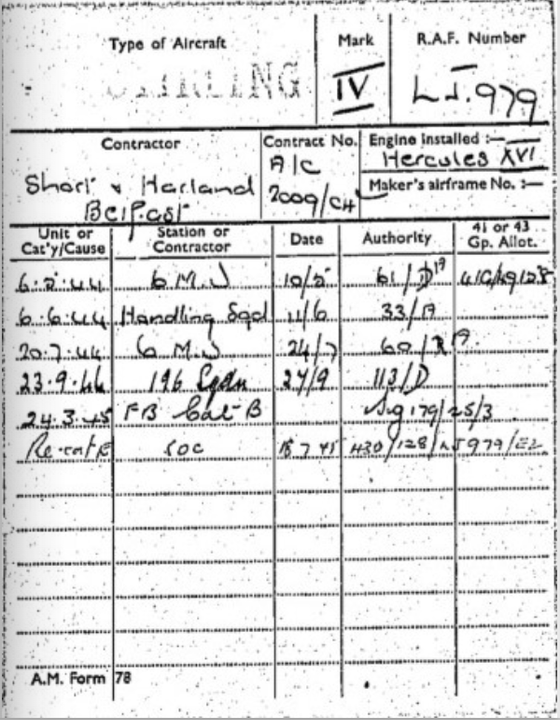 Type of Aircraft Mark R.A.F. Number
STIRLING IV LJ.979
Contractor Contract No. Engine installed :—
Short & Harland A/C Hercules XVI
Belfast 2009/CH Maker's airframe No. :—
Unit or Cat'y/Cause Station or Contractor Date Authority 41 or 43 Gp. Allot.
6.5.44 6 M.U 10/5 61/D
6.6.44 Handling Sqd 11/6 33/A
20.7.44 6 M.U 24/7 60/
23.9.44 196 Sqdn 27/9 113/D
24.3.45 FB Cat B Sig 179/25/3
Re-cat E SOC 18 7 45 430/128/LJ979/E2
A.M. Form 78